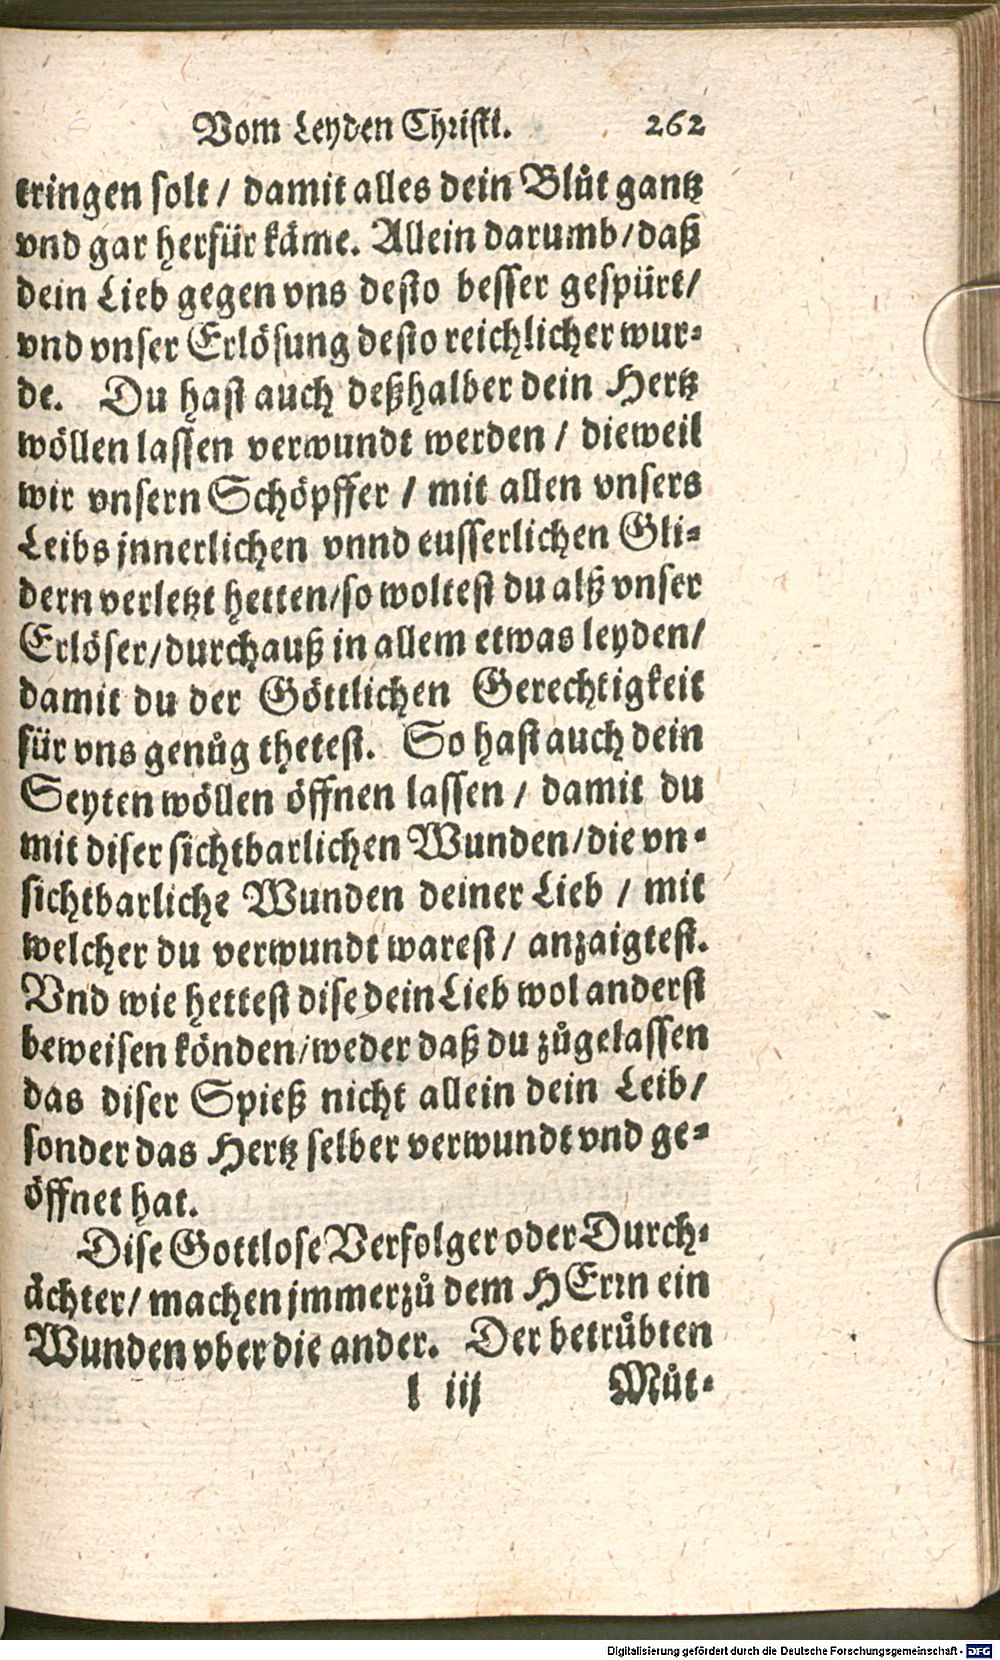 Vom Leyden Christi. 262
tringen solt / damit alles dein Blůt gantz
vnd gar herfür käme. Allein darumb / daß
dein Lieb gegen vns desto besser gespürt /
vnd vnser Erlösung desto reichlicher wur-
de. Du hast auch deßhalber dein Hertz
wöllen lassen verwundt werden / dieweil
wir vnsern Schöpffer / mit allen vnsers
Leibs jnnerlichen vnnd eusserlichen Gli-
dern verletzt hetten / so woltest du alß vnser
Erlöser / durchauß in allem etwas leyden /
damit du der Göttlichen Gerechtigkeit
für vns genůg thetest. So hast auch dein
Seyten wöllen öffnen lassen / damit du
mit diser sichtbarlichen Wunden / die vn-
sichtbarliche Wunden deiner Lieb / mit
welcher du verwundt warest / anzaigtest.
Vnd wie hettest dise dein Lieb wol anderst
beweisen könden / weder daß du zůgelassen
das diser Spieß nicht allein dein Leib /
sonder das Hertz selber verwundt vnd ge-
öffnet hat.
Dise Gottlose Verfolger oder Durch-
ächter / machen jmmerzů dem HErrn ein
Wunden vber die ander. Der betrůbten
l iij Můt-
Digitalisierung gefördert durch die Deutsche Forschungsgemeinschaft - DFG